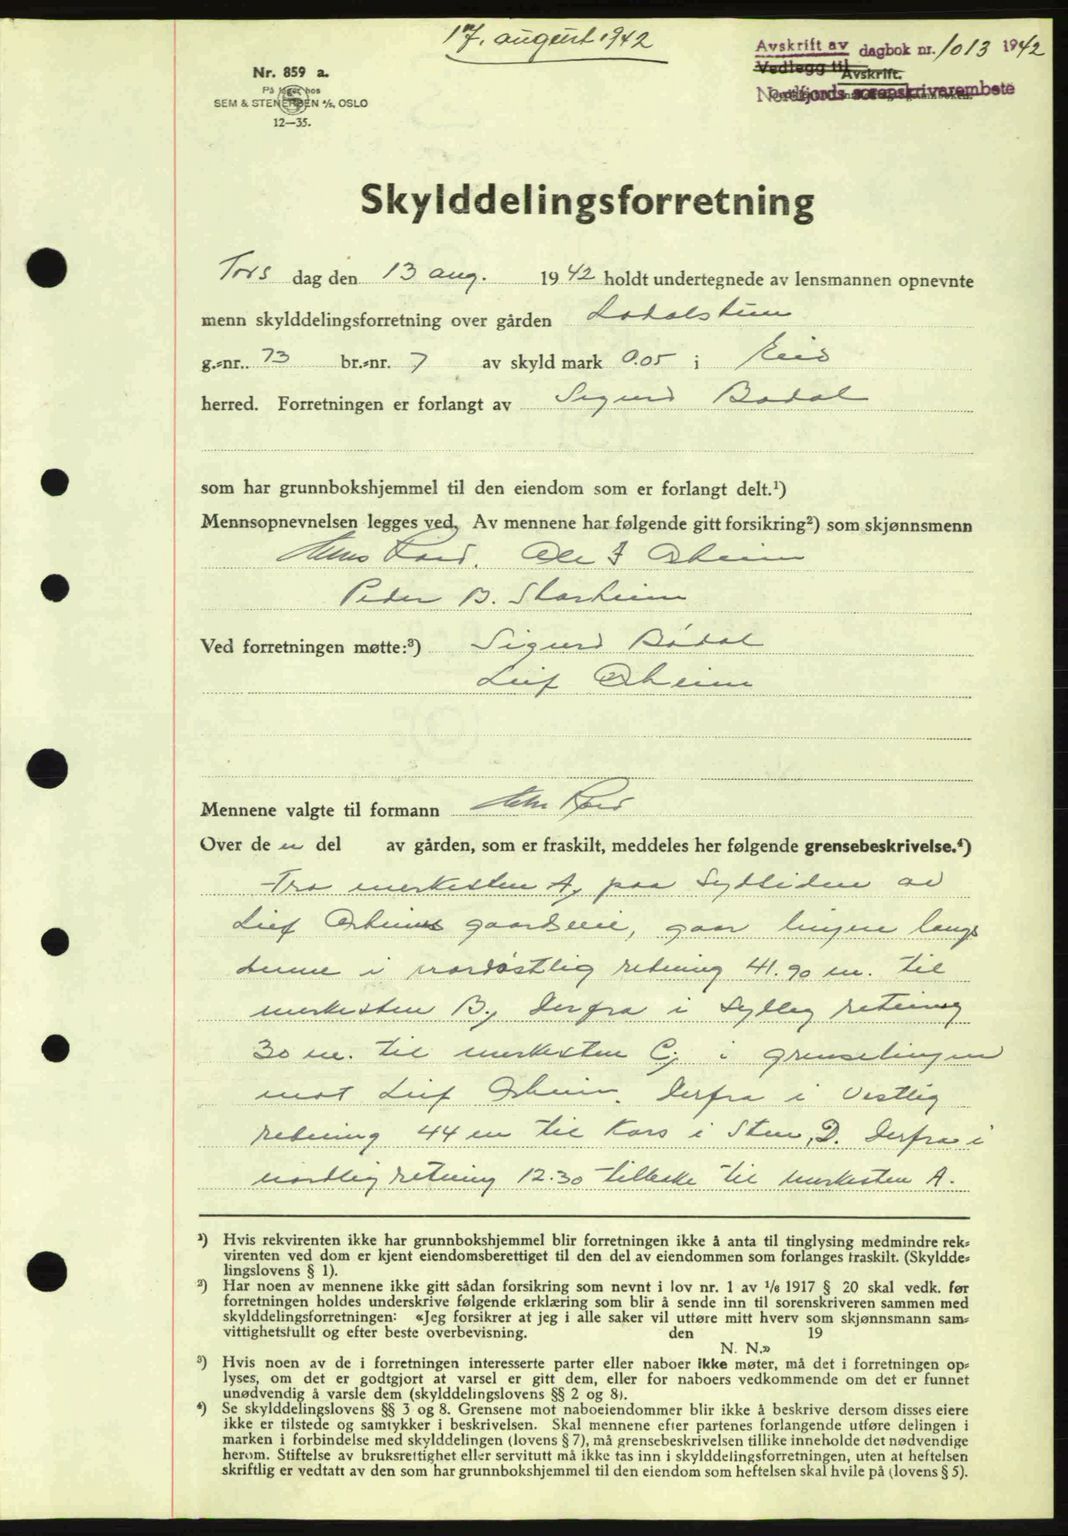 17. august 1942
Avskrift av dagbok nr. 1013 1942
Vedlegg til
Avskrift.
Nordfjords sorenskriverembete
Nr. 859 a.
På lager hos
SEM & STENERSEN A/S, OSLO
12—35.
Skylddelingsforretning
Tors dag den 13 aug. 1942 holdt undertegnede av lensmannen opnevnte
menn skylddelingsforretning over gården
g.-nr. 73 br.-nr. 7 av skyld mark 0.05 i Eid
herred. Forretningen er forlangt av Sigurd Bødal
som har grunnbokshjemmel til den eiendom som er forlangt delt.¹)
Mennsopnevnelsen legges ved. Av mennene har følgende gitt forsikring²) som skjønnsmenn
Ole J Osheim
Peder B. Skarheim
Ved forretningen møtte:³) Sigurd Bødal
Leif Osheim
Mennene valgte til formann
Over de n del av gården, som er fraskilt, meddeles her følgende grensebeskrivelse.⁴)
Fra merkesten A, paa Sydsiden av
Leif Osheims gaardsvei, gaar linjen langs
denne i nordøstlig retning 41.90 m. til
merkesten B, derfra i Sydleg retning
30 m. til merkesten C, i grenselinjen
mot Leif Osheim. Derfra i Vestlig
retning 44 m til Kors i Sten, D. Derfra i
nordlig retning 12.30 tilbake til merkesten A.
¹) Hvis rekvirenten ikke har grunnbokshjemmel blir forretningen ikke å anta til tinglysing medmindre rek-
virenten ved dom er kjent eiendomsberettiget til den del av eiendommen som forlanges fraskilt. (Skyldde-
lingslovens § 1).
²) Har noen av mennene ikke gitt sådan forsikring som nevnt i lov nr. 1 av ¹/₆ 1917 § 20 skal vedk. før
forretningen holdes underskrive følgende erklæring som blir å sende inn til sorenskriveren sammen med
skylddelingsforretningen: «Jeg forsikrer at jeg i alle saker vil utføre mitt hverv som skjønnsmann sam-
vittighetsfullt og efter beste overbevisning. den 19
N. N.»
³) Hvis noen av de i forretningen interesserte parter eller naboer ikke møter, må det i forretningen op-
lyses, om det er godtgjort at varsel er gitt dem, eller for naboers vedkommende om det er funnet
unødvendig å varsle dem (skylddelingslovens §§ 2 og 8).
⁴) Se skylddelingslovens §§ 3 og 8. Grensene mot naboeiendommer blir ikke å beskrive dersom disses eiere
ikke er tilstede og samtykker i beskrivelsen. Skal mennene efter partenes forlangende utføre delingen i
marken i forbindelse med skylddelingen (lovens § 7), må grensebeskrivelsen tillike inneholde det nødvendige
herom. Stiftelse av bruksrettighet eller servitutt må ikke tas inn i skylddelingsforretningen, uten at heftelsen
skriftlig er vedtatt av den som har grunnbokshjemmel til den eiendom som heftelsen skal hvile på (lovens § 5).